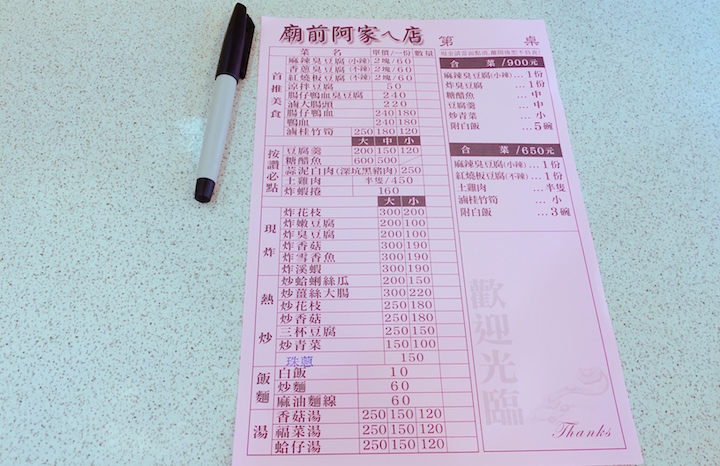 廟前阿家ㄟ店
第 桌
菜 名 單價/一份 數量
首推美食
麻辣臭豆腐(小辣) 2塊/60
香蔥臭豆腐(不辣) 2塊/60
紅燒臭豆腐(不辣) 2塊/60
涼拌豆腐 50
腸仔鴨血臭豆腐 240
滷大腸頭 220
腸仔鴨血 240 180
鴨血 240 180
滷桂竹筍 250 180 120
大 中 小
按讚必點
豆腐羹 200 150 120
糖醋魚 600 500
蒜泥白肉(深坑黑豬肉) 250
土雞肉 半隻/450
炸蝦捲 160
大 小
現炸
炸花枝 300 200
炸嫩豆腐 200 100
炸臭豆腐 200 100
炸香菇 300 190
炸雪香魚 300 190
炸溪蝦 300 190
熱炒
炒蛤蜊絲瓜 200 150
炒薑絲大腸 300 220
炒花枝 250 180
炒香菇 250 180
三杯豆腐 250 150
炒青菜 150 100
珠蔥 150
飯麵
白飯 10
炒麵 60
麻油麵線 60
湯
香菇湯 250 150 120
福菜湯 250 150 120
蛤仔湯 250 150 120
合 菜/900元
麻辣臭豆腐(小辣)...1份
炸臭豆腐 ...1份
糖醋魚 ...中
豆腐羹 ...中
炒青菜 ...小
附白飯 ...5碗
合 菜/650元
麻辣臭豆腐(小辣)...1份
紅燒板豆腐(不辣)...1份
土雞肉 ...半隻
滷桂竹筍 ...小
附白飯 ...3碗
歡迎光臨
Thanks